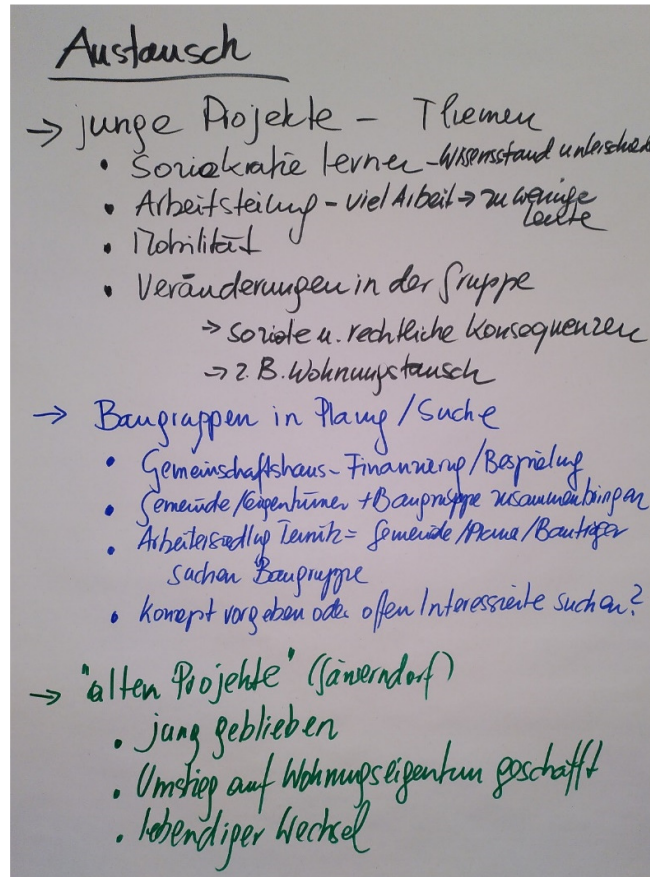 Austausch
→ junge Projekte – Themen
• Soziokratie lernen – Wissensstand unterschied
• Arbeitsteilung – viel Arbeit → zu wenige
Leute
• Mobilität
• Veränderungen in der Gruppe
→ soziale u. rechtliche Konsequenzen
→ z. B. Wohnungstausch
→ Baugruppen in Planug / Suche
• Gemeinschaftshaus – Finanzierung / Bespielung
• Gemeinde / Eigentümer + Baugruppe zusammenbringen
• Arbeitersiedlug Ternitz = Gemeinde / Planer / Bauträger
suchen Baugruppe
• Konzept vorgeben oder offen Interessierte suchen?
→ "alten Projekte" (Gänserndorf)
• jung geblieben
• Umstieg auf Wohnungseigentum geschafft
• lebendiger Wechsel